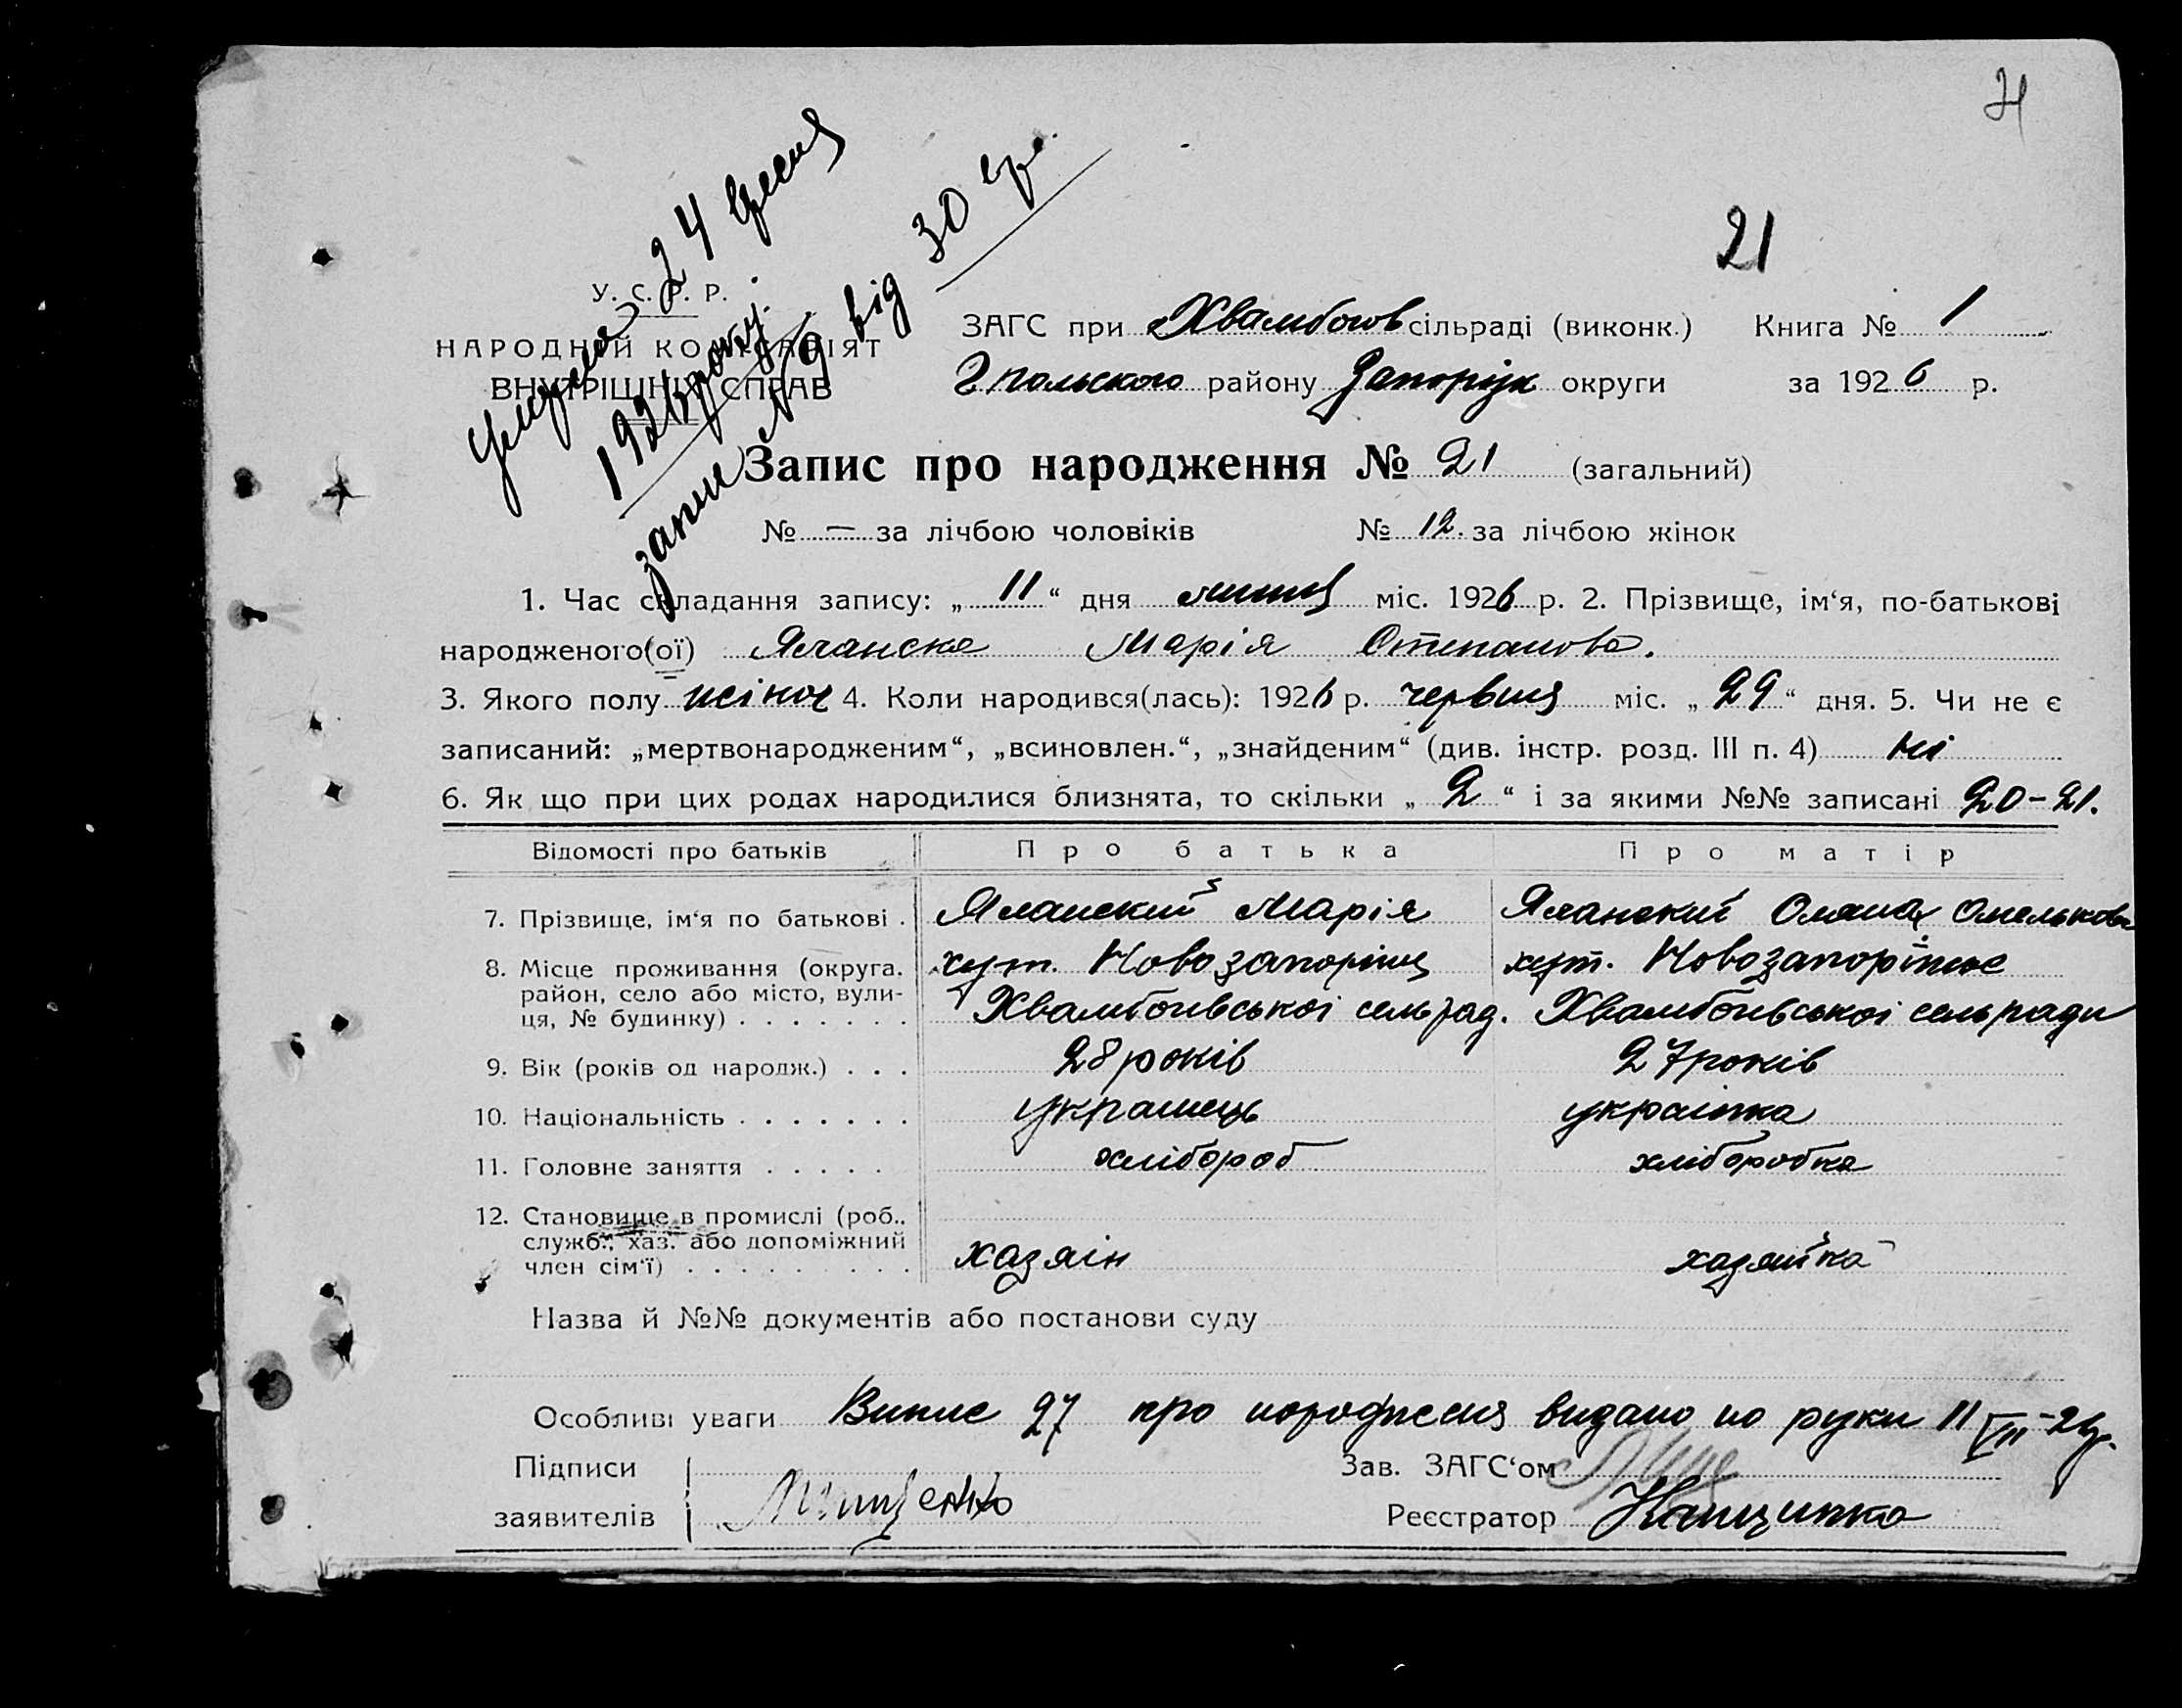 21
У. С. Р. Р.
НАРОДНІЙ КОМІСАРІЯТ
ВНУТРІШНІХ СПРАВ
24
192 року.
запис № 9 від 30
ЗАГС при сільраді (виконк.) Книга № 1
району Запоріж округи за 1926 р.
Запис про народження № 21 (загальний)
№ — за лічбою чоловіків № 12. за лічбою жінок
1. Час складання запису: „ 11 “ дня липця міс. 1926 р. 2. Прізвище, ім‘я, по-батькові
народженого(ої) Яланска Марія Степанова.
3. Якого полу жіноч 4. Коли народився(лась): 1926 р. червня міс. „ 29 “ дня. 5. Чи не є
записаний: „мертвонародженим“, „всиновлен.“, „знайденим“ (див. інстр. розд. III п. 4) ні
6. Як що при цих родах народилися близнята, то скільки „ 2 “ і за якими №№ записані 20-21.
Відомості про батьків Про батька Про матір
7. Прізвище, ім‘я по батькові . Яланский Марія Яланский Омелькова
8. Місце проживання (округа. хут. хут.
район, село або місто, вули- Хвалибогівської сельрад. Хвалибогівської сельради
ця, № будинку) . . . . . . .
9. Вік (років од народж.) . . . 28 років 27 років
10. Національність . . . . . . . українець українка
11. Головне заняття . . . . . хлібороб хлібопобка
12. Становище в промислі (роб..
служб., хаз. або допоміжний хазяін хазяйка
член сім‘ї) . . . . . . . . .
Назва й №№ документів або постанови суду
Особливі уваги Випис 27 про народження видано на руки 11 VII-26р.
Підписи Зав. ЗАГС‘ом
заявителів Реєстратор